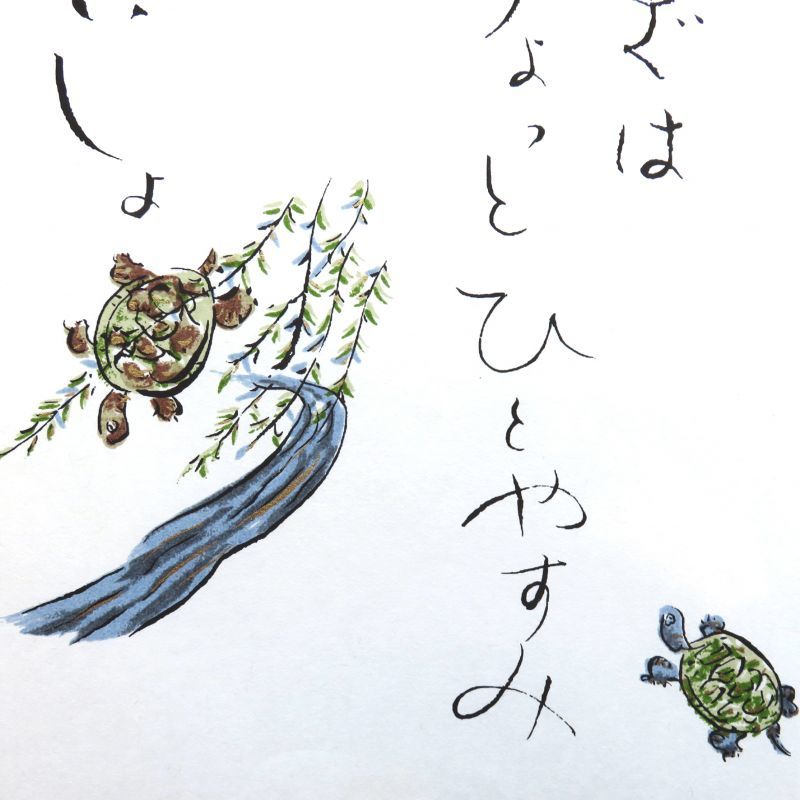 ずは
ょっとひとやすみ
しょ